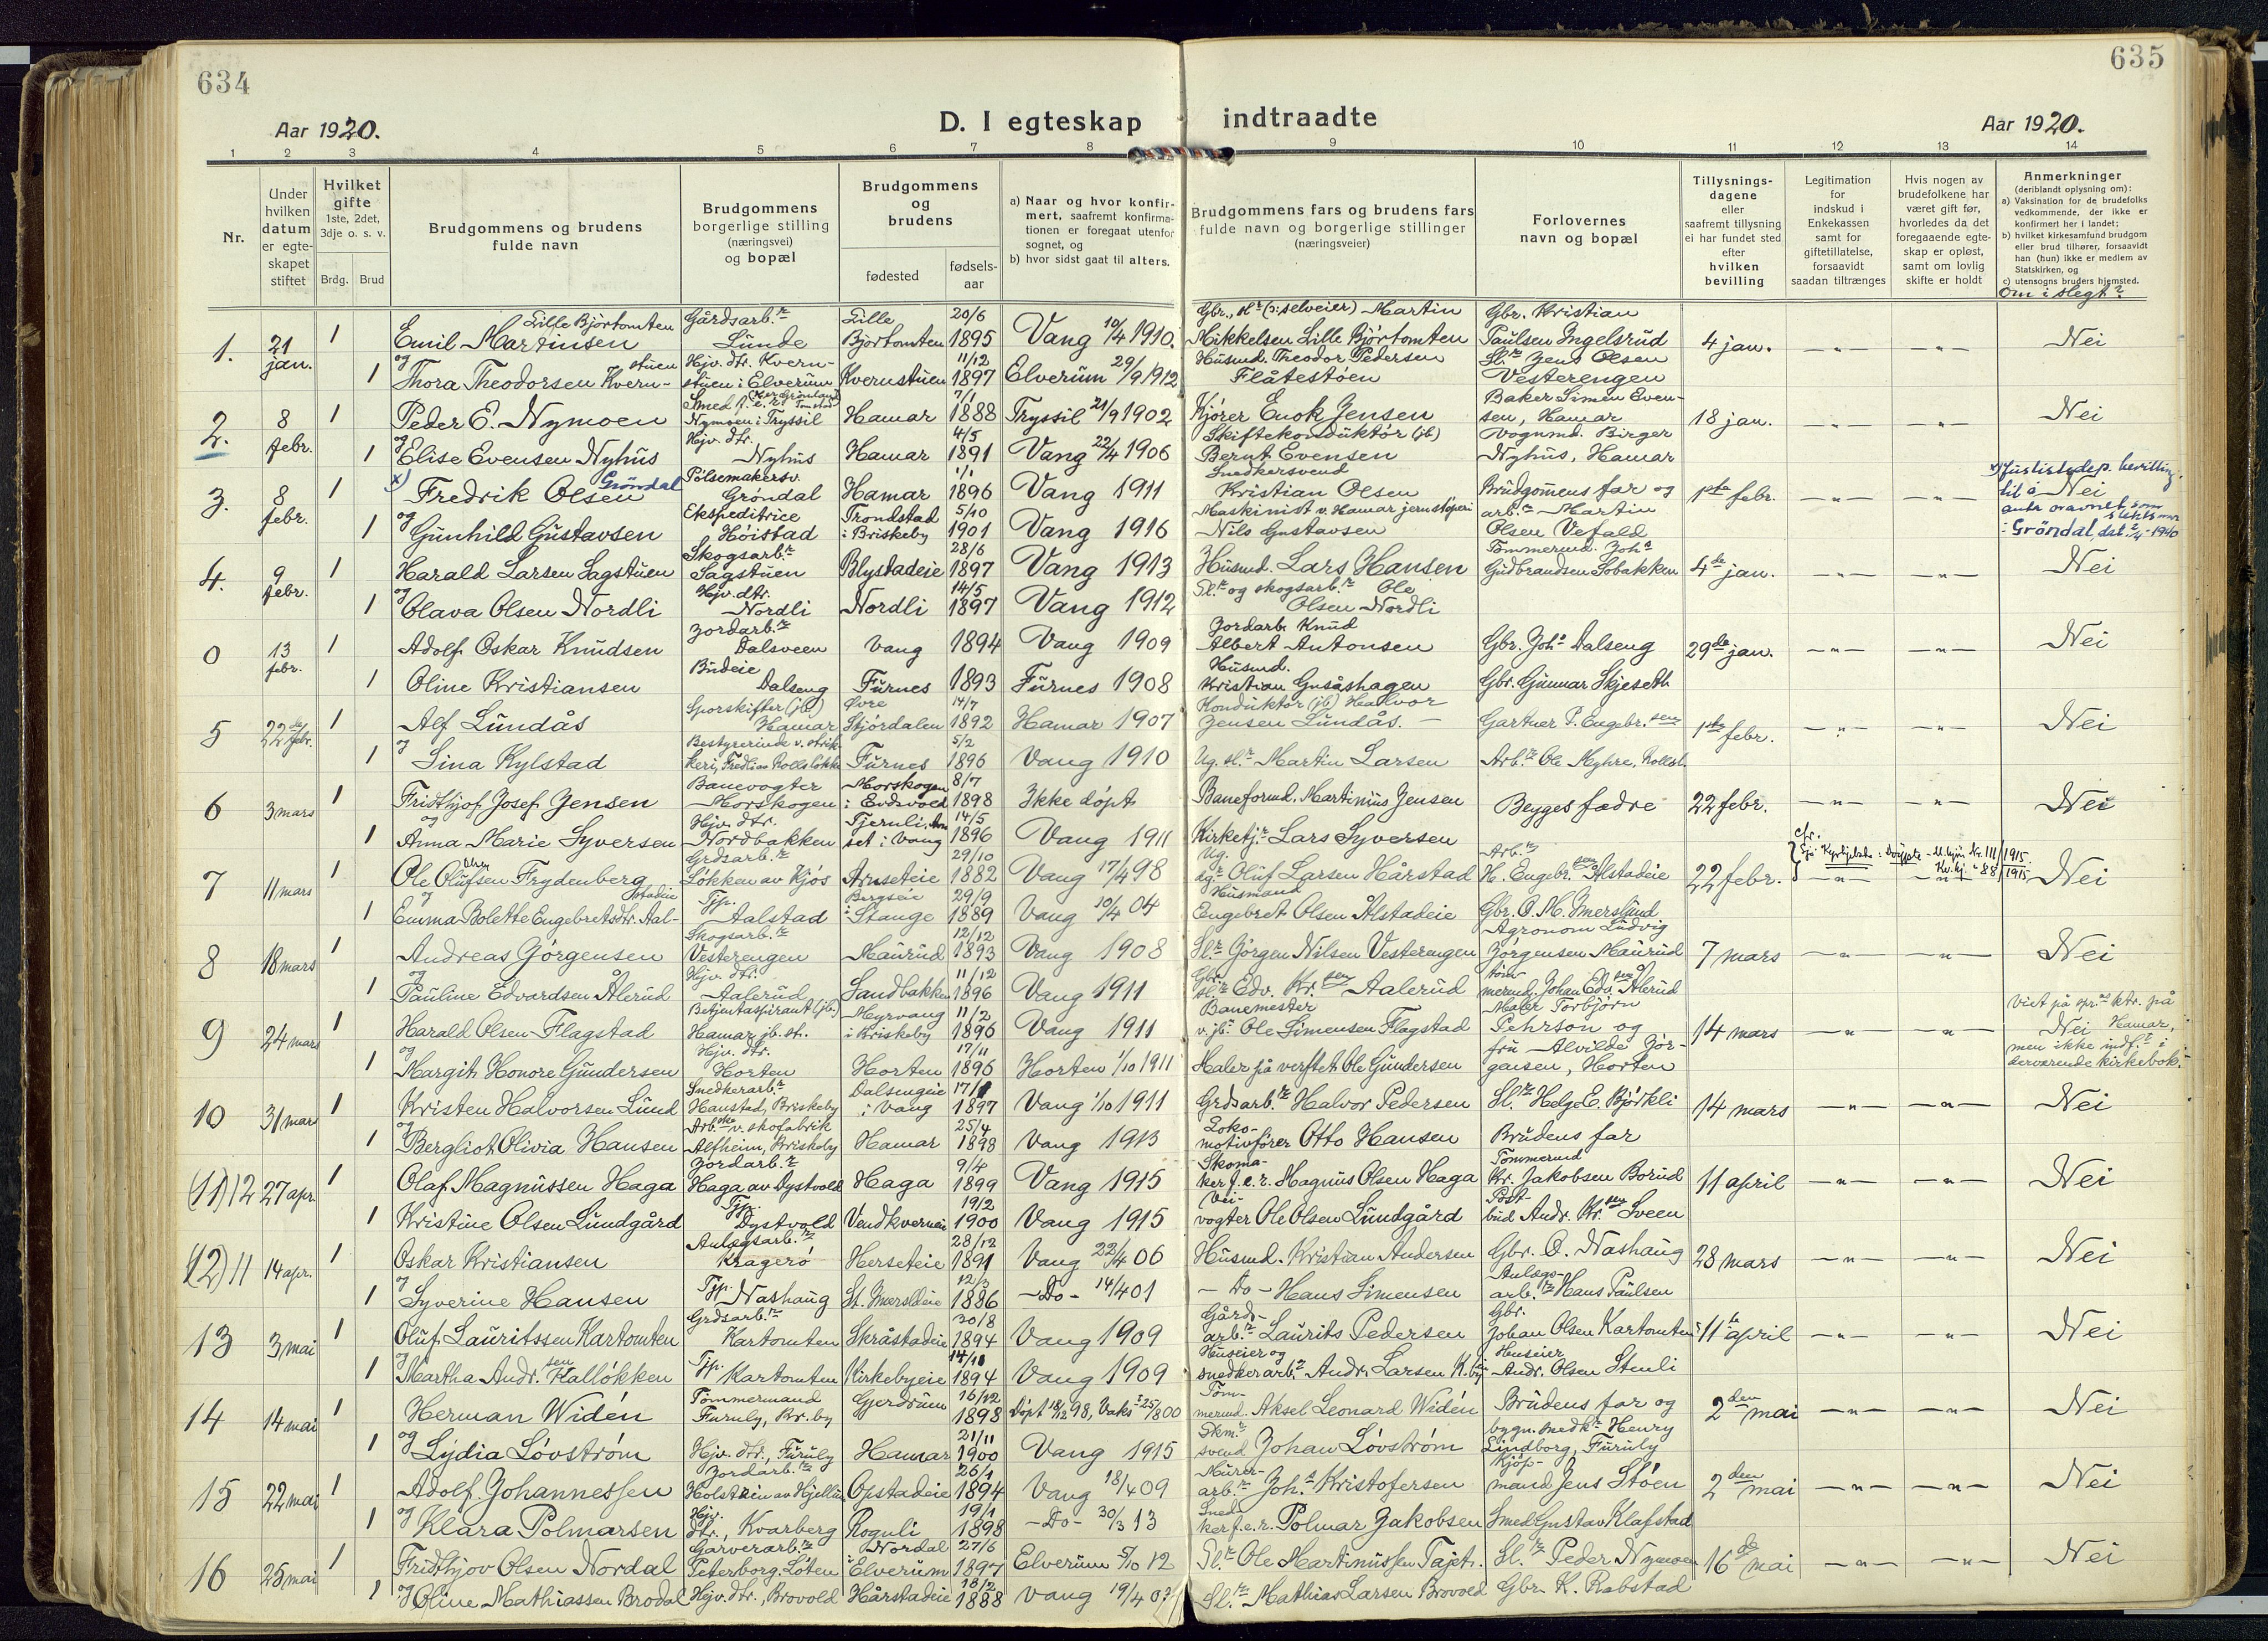 634
635
Aar 1920.
D. I egteskap indtraadte
Aar 1920.
1 2 3 4 5 6 7 8 9 10 11 12 13 14
Nr.
Under hvilken datum er egteskapet stiftet
Hvilket gifte 1ste, 2det, 3dje o. s. v.
Brdg. Brud
Brudgommens og brudens fulde navn
Brudgommens borgerlige stilling (næringsvei) og bopæl
Brudgommens og brudens
fødested
fødselsaar
a) Naar og hvor konfirmert, saafremt konfirmationen er foregaat utenfor sognet, og
b) hvor sidst gaat til alters.
Brudgommens fars og brudens fars fulde navn og borgerlige stillinger (næringsveier)
Forlovernes navn og bopæl
Tillysningsdagene eller saafremt tillysning ei har fundet sted efter hvilken bevilling
Legitimation for indskud i Enkekassen samt for giftetillatelse, forsaavidt saadan tiltrænges
Hvis nogen av brudefolkene har været gift før, hvorledes da det foregaaende egteskap er opløst, samt om lovlig skifte er holdt
Anmerkninger
(deriblandt oplysning om):
a) Vaksination for de brudefolks vedkommende, der ikke er konfirmert her i landet;
b) hvilket kirkesamfund brudgom eller brud tilhører, forsaavidt han (hun) ikke er medlem av Statskirken, og
c) utensogns bruders hjemsted.
Om i slegt?
1. 21 jan. 1 Emil Martinsen Lille Bjørtomten Gårdsarb.r Lunde Lille Bjørtomten 20/6 1895 Vang 10/4 1910. Gbr., sl.r (ɔ: selveier) Martin Mikkelsen Lille Bjørtomten Gbr. Kristian Paulsen Ingelsrud 4 jan. -"- -"- Nei
og 1 Thora Theodorsen Kvernstuen Hjv. dtr. Kvernstuen i Elverum Kvernstuen 11/12 1897 Elverum 29/9 1912 Husmd. Theodor Pedersen Flåtestøen Sl.r Jens Olsen Vesterengen
2. 8 febr. 1 Peder E. Nymoen Smed Nymoen i Tryssil Hamar 7/1 1888 Tryssil 21/9 1902 Kjører Enok Jensen Baker Simen Evensen, Hamar 18 jan. -"- -"- Nei
og 1 Elise Evensen Nyhus Hjv. dtr. Nyhus Hamar 4/5 1891 Vang 22/4 1906 Skiftekonduktør (jb) Bernt Evensen Vognmd. Birger Nyhus, Hamar
3. 8 febr. 1 x) Fredrik Olsen Gröndal Pølsemakersv. Grøndal Hamar 1/1 1896 Vang 1911 Snedkersvend Kristian Olsen Brudgommens far og 1ste febr. -"- -"- Nei
x) Justisdep. bevilling til å anta navnet som slektsnavn Gröndal, dat. 1940
og 1 Gunhild Gustavsen Ekspeditrice Høistad Trondstad i Briskeby 5/10 1901 Vang 1916 Maskinist v. Hamar jernstøperi Nils Gustavsen arb.r Martin Olsen Vefald
4. 9 febr. 1 Harald Larsen Sagstuen Skogsarb.r Sagstuen Blystadeie 28/6 1897 Vang 1913 Husmd. Lars Hansen Tømmermd. Joh.s Gudbrandsen Sobakken 4de jan. -"- -"- Nei
og 1 Olava Olsen Nordli Hjv. dtr. Nordli Nordli 14/5 1897 Vang 1912 Sl.r og skogsarb.r Ole Olsen Nordli
0 13 febr. 1 Adolf Oskar Knudsen Jordarb.r Dalsveen Vang 1894 Vang 1909 Jordarb. Knud Albert Antonsen Gbr. Joh.s Dalseng 29de jan. -"- -"- Nei
1 Oline Kristiansen Budeie Dalseng Furnes 1893 Furnes 1908 Husmd. Kristian Gusåshagen Gbr. Gunnar Skjeseth
5 22de febr. 1 Alf Lundås Sporskifter (jb.) Hamar Øvre Stjørdalen 14/7 1892 Hamar 1907 Konduktør (jb) Halvor Jensen Lundås. Gartner P. Engebr.sen 1ste febr. -"- -"- Nei
og 1 Lina Kylstad Bestyrerinde v. strikkeri, Fredlien Rolleløkken Furnes 5/2 1896 Vang 1910 Ug. sl.r Martin Larsen Arb.r Ole Myhre, Rollesl.
6 3 mars 1 Fridthjof Josef Jensen Banevogter Morskogen Morskogen i Eidsvold 8/7 1898 Ikke døpt Baneformd. Martinius Jensen Begges fædre 22 febr. -"- -"- Nei
og 1 Anna Marie Syversen Hjv. dtr. Nordbakken Tjernli, i Vang 14/5 1896 Vang 1911 Kirketj.r Lars Syversen
7 11 mars 1 Ole Olufsen Frydenberg Grdsarb.r Løkken av Kjos Arnseteie 29/10 1882 Vang 17/4 98 Ug. Oluf Larsen Hårstad Arb.r H. Engebr.sen Alstadeie 22 febr. -"- -"- Nei
og 1 Emma Bolette Engebretsdtr. Aalstadeie Tjp. Aalstad Bergseie i Stange 29/9 1889 Vang 10/4 04 Husmand Engebret Olsen Alstadeie Gbr. O. M. Imerslund
8 18 mars 1 Andreas Gørgensen Skogsarb.r Vesterengen Maurud 12/12 1893 Vang 1908 Sl.r Jørgen Nilsen Vesterengen Agronom Ludvig Jørgensen Maurud 7 mars -"- -"- Nei
og 1 Pauline Edvardsen Ålerud Hjv. dtr. Aalerud Sandbakken 11/12 1896 Vang 1911 Gbr. sl.r Edv. Kr.sen Aalerud Tømmermd. Johan Edv.sen Ålerud
9 24 mars 1 Harald Olsen Flagstad Betjentaspirant (jb.) Hamar jb. st. Myrvang i Briskeby 11/2 1896 Vang 1911 Banemester v. jb. Ole Simensen Flagstad Maler Torbjørn Pehrson og 14 mars -"- -"- Nei
Viet på spr. ktr. på Hamar, men ikke indf.t i derværende kirkebok.
og 1 Margit Honore Gundersen Hjv. dtr. Horten Horten 17/11 1896 Horten 1/10 1911 Maler på verftet Ole Gundersen fru Alvilde Jørgensen, Horten
10 31 mars 1 Kristen Halvorsen Lund Snedkerarb.r Haustad, Briskeby Dalsengeie i Vang 1897 Vang 1/10 1911 Grdsarb.r Halvor Pedersen Sl.r Helge E. Bjørkli 14 mars -"- -"- Nei
og 1 Bergliot Olivia Hansen Arb.ske v. skofabrik Alfheim, Briskeby Hamar 25/4 1898 Vang 1913 Lokomotivfører Otto Hansen Brudens far
(11) 12 27 apr. 1 Olaf Magnussen Haga Jordarb.r Haga av Dystvold Haga 9/4 1899 Vang 1915 Skomaker f. e. r. Magnus Olsen Haga Tømmermd Kr. Jakobsen Borud 11 april -"- -"- Nei
1 Kristine Olsen Lundgård Tjp. Dystvold Vendkvernen 19/2 1900 Vang 1915 Veivogter Ole Olsen Lundgård Postbud Andr. Kr.sen Sveen
(12) 11 14 apr. 1 Oskar Kristiansen Anlægsarb.r Kragerø Herseteie 28/12 1891 Vang 22/4 06 Husmd. Kristian Andersen Gbr. O. Nashaug 28 mars -"- -"- Nei
og 1 Syverine Hansen Tjp. Nashaug 12/3 1886 -Do- 14/4 01 -Do- Hans Simensen Anlægsarb.r Hans Paulsen
13 3 mai 1 Oluf Lauritssen Kartomten Grdsarb.r Kartomten Skråstadeie 30/8 1894 Vang 1909 Gårdsarb.r Laurits Pedersen Gbr. Johan Olsen Kartomten 11te april -"- -"- Nei
og 1 Martha Andr.sen Kalløkken Tjp. Kartomten Kirkebyeie 1894 Vang 1909 Huseier og snedkerarb.r Andr. Larsen K.by Huseier Andr. Olsen Stenli
14 14 mai 1 Herman Widén Tømmermand Furuly, Br.by Gjerdrum 16/12 1898 Døpt 18/12 98, Vaks. 25/8 00 Tømmermd. Aksel Leonard Widén Brudens far og 2den mai -"- -"- Nei
og 1 Lydia Løvstrøm Hjv. dtr., Furuly Hamar 21/11 1900 Vang 1915 Skm.r svend Johan Løvstrøm bygn. snedk.r Henry Lindborg, Furuly
15 22 mai 1 Adolf Johannessen Jordarb.r Holstein av Hjellum Opstadeie 26/1 1894 Vang 18/4 09 Murerarb.r Joh.s Kristofersen Kjøpmand Jens Støen 2den mai -"- -"- Nei
og 1 Klara Polmarsen Hjv. dtr., Kvarberg Roguli 19/1 1898 -Do- 30/3 13 Snedker f. e. r. Polmar Jakobsen Smed Gustav Klafstad
16 25 mai 1 Fridthjov Olsen Nordal Garverarb.r Peterborg. Løten Nordal i Elverum 27/6 1897 Elverum 5/10 12 Sl.r Ole Martinussen Tajet. Sl.r Peder Nymoen 16de mai -"- -"- Nei
og 1 Oline Mathiassen Brodal Hjv. dtr., Brovold Hårstadeie 18/2 1888 Vang 19/4 03 Sl.r Mathias Larsen Brovold Gbr. K. Robstad